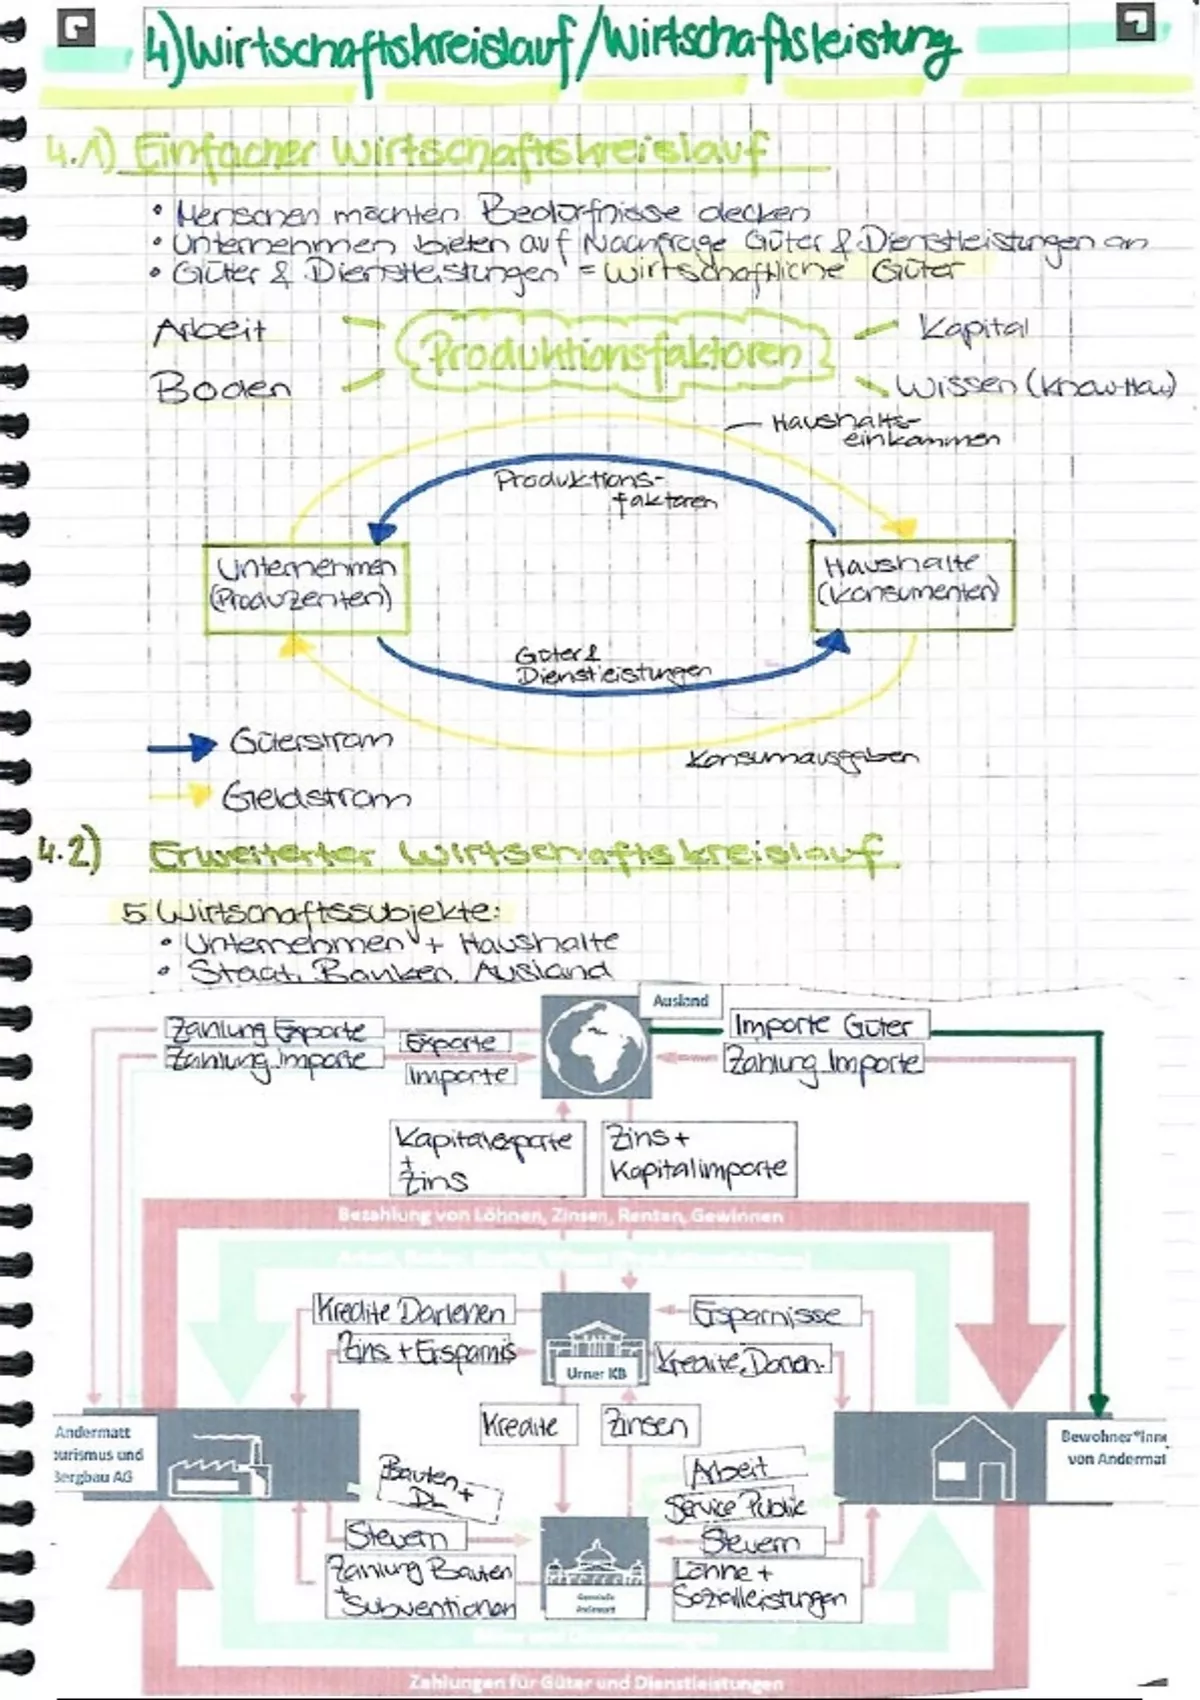 4) Wirtschaftskreislauf/Wirtschaftsleistung
4.1) Einfacher Wirtschaftskreislauf
• Menschen möchten Bedürfnisse decken
• Unternehmen bieten auf Nachfrage Güter & Dienstleistungen an
• Güter & Dienstleistungen = wirtschaftliche Güter
Arbeit
Produktionsfaktoren
Kapital
Boden
Wissen (Know-How)
Haushalts-
einkommen
Produktions-
faktoren
Unternehmen
(Produzenten)
Haushalte
(Konsumenten)
Güter &
Dienstleistungen
Güterstrom
Konsumausgaben
Geldstrom
4.2) Erweiterter Wirtschaftskreislauf
5 Wirtschaftssubjekte:
• Unternehmen + Haushalte
• Staat, Banken, Ausland
Ausland
Zahlung Exporte
Exporte
Importe Güter
Zahlung Importe
Importe
Zahlung Importe
Kapitalexporte
+
Zins
Zins +
Kapitalimporte
Bezahlung von Löhnen, Zinsen, Renten, Gewinnen
Kredite Darlehen
Ersparnisse
Zins + Ersparnis
Urner KB
Kredite, Darleh.
Kredite
Zinsen
Andermatt
ourismus und
Bergbau AG
Bewohner*inne
von Andermat
Bauten +
DL
Arbeit
Service Public
Steuern
Steuern
Zahlung Bauten
+
Subventionen
Gemeinde
Andermatt
Löhne +
Sozialleistungen
Güter und Dienstleistungen
Zahlungen für Güter und Dienstleistungen